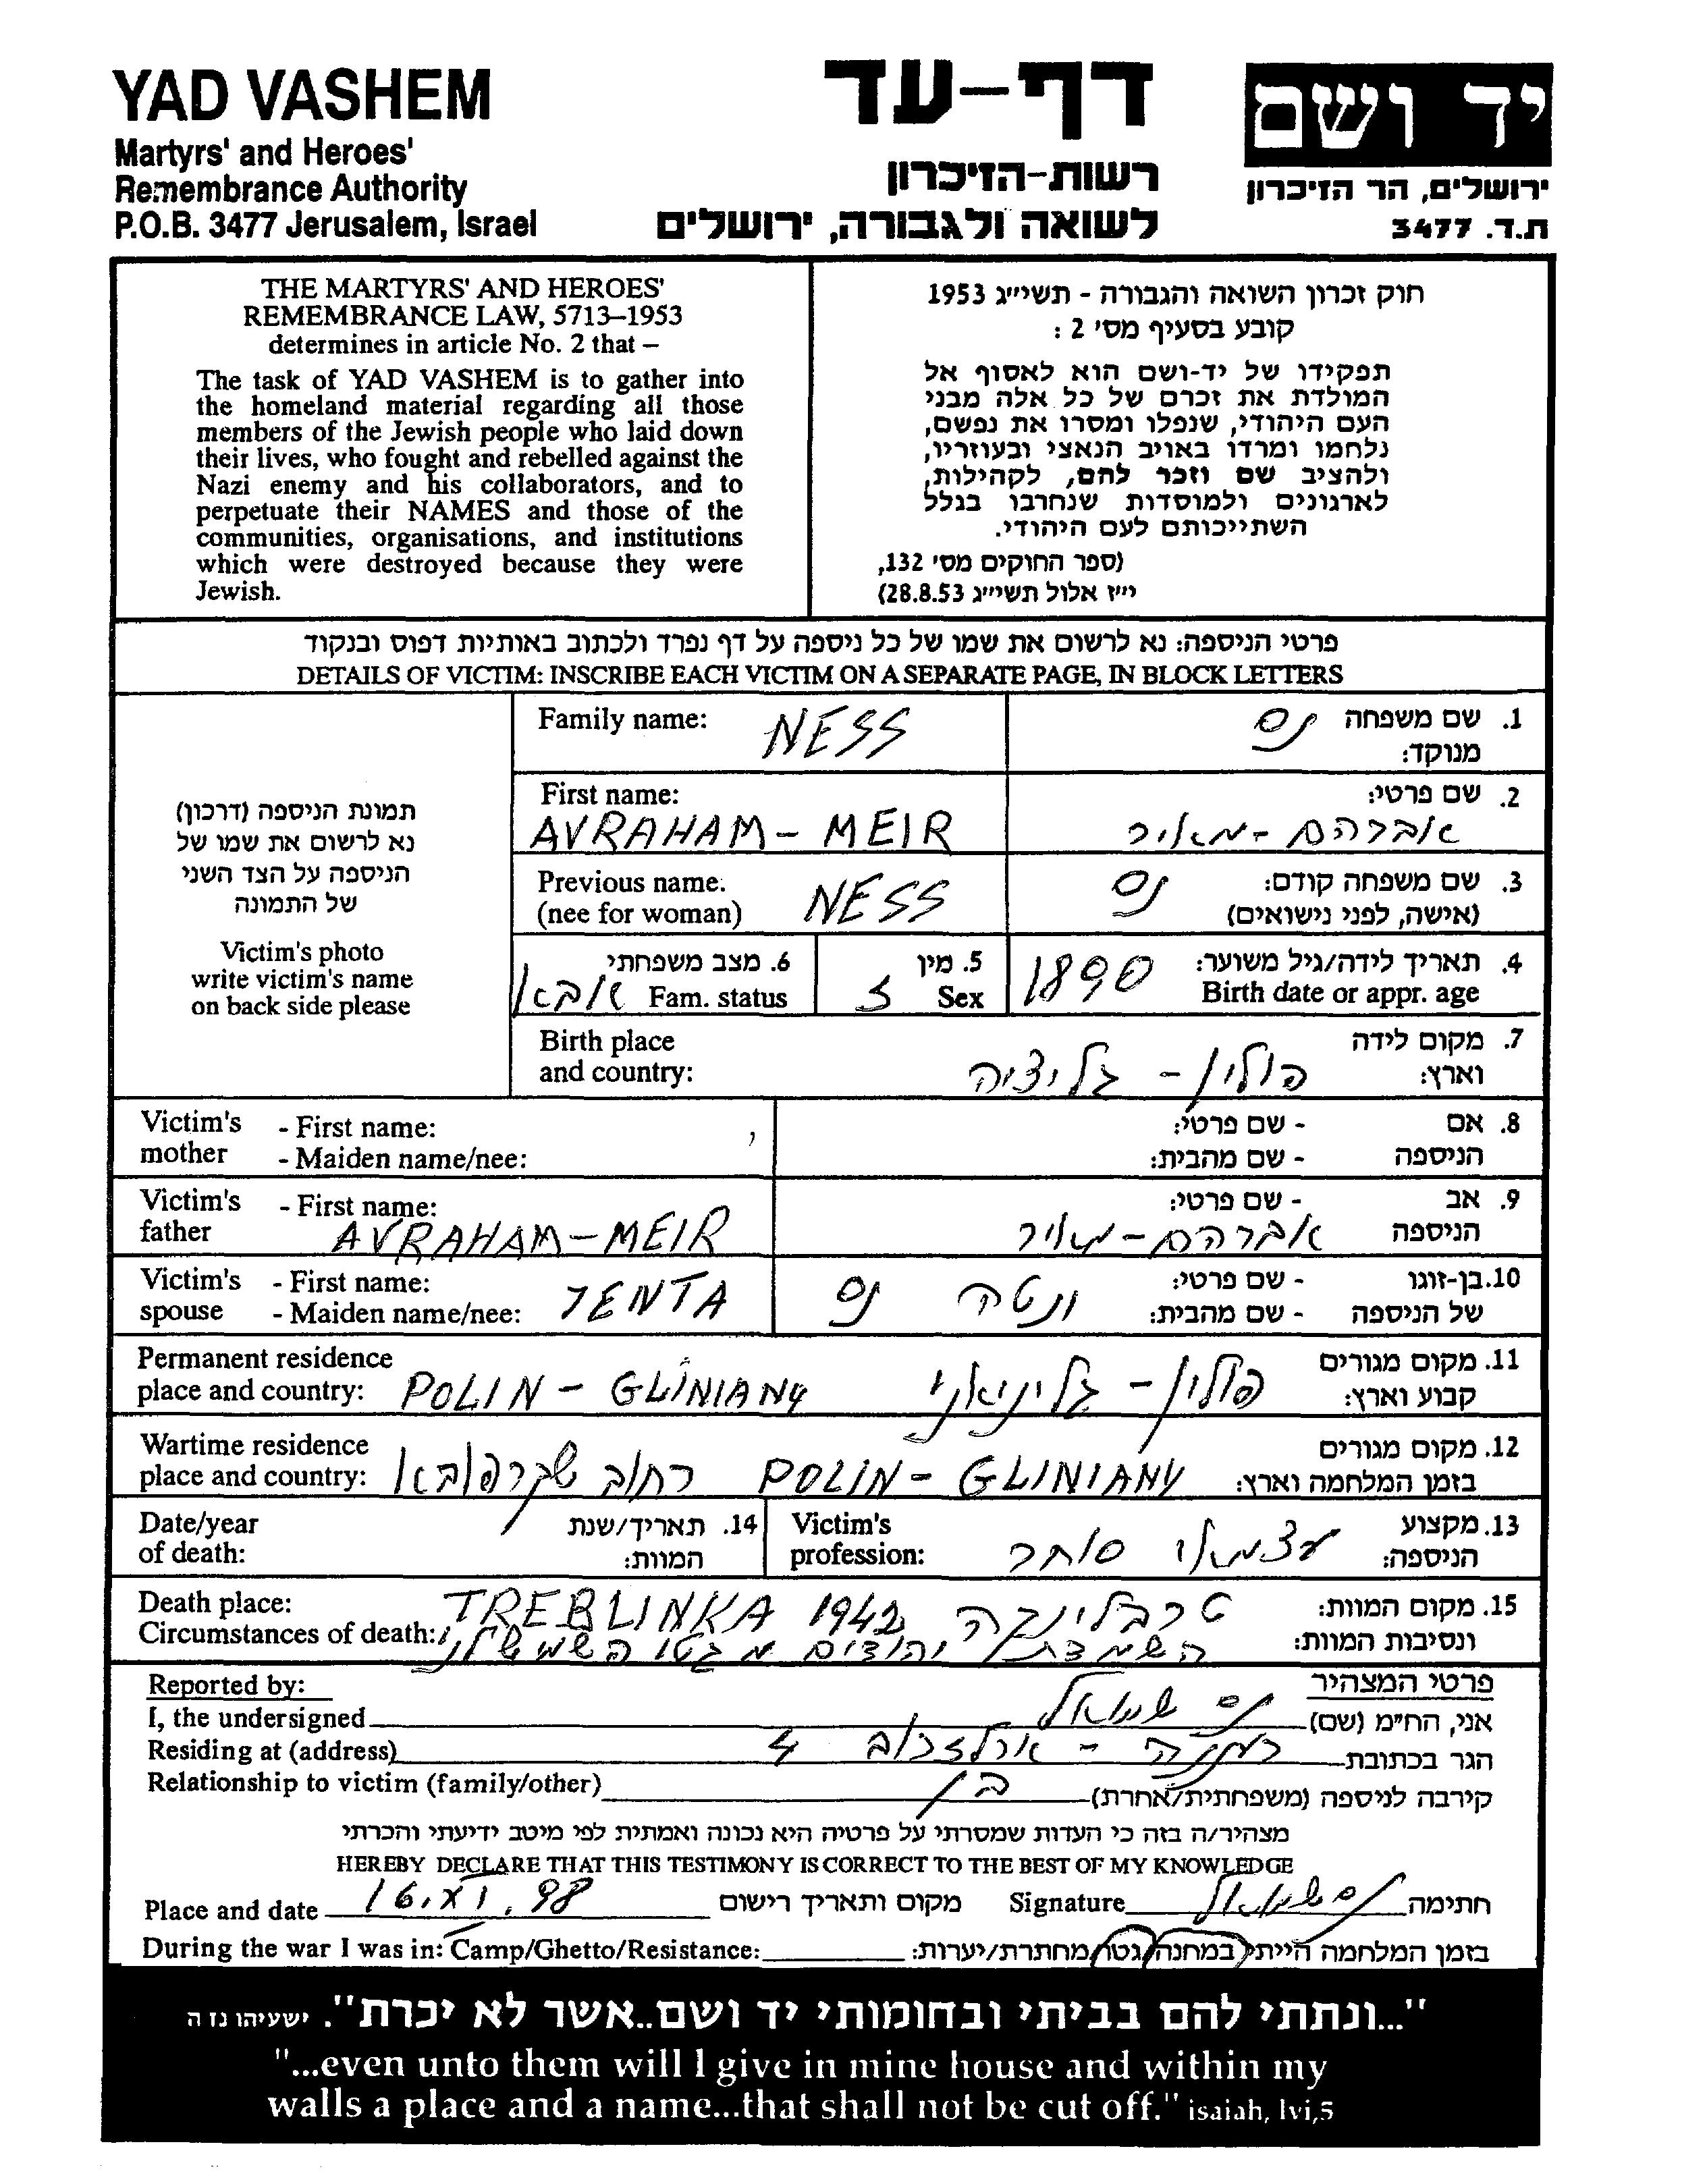 YAD VASHEM
Martyrs' and Heroes'
Remembrance Authority
P.O.B. 3477 Jerusalem, Israel
דף-עד
רשות-הזיכרון
לשואה ולגבורה, ירושלים
יד ושם
ירושלים, הר הזיכרון
ת.ד. 3477
THE MARTYRS' AND HEROES'
REMEMBRANCE LAW, 5713–1953
determines in article No. 2 that –
The task of YAD VASHEM is to gather into
the homeland material regarding all those
members of the Jewish people who laid down
their lives, who fought and rebelled against the
Nazi enemy and his collaborators, and to
perpetuate their NAMES and those of the
communities, organisations, and institutions
which were destroyed because they were
Jewish.
חוק זכרון השואה והגבורה - תשי״ג 1953
קובע בסעיף מס' 2 :
תפקידו של יד-ושם הוא לאסוף אל
המולדת את זכרם של כל אלה מבני
העם היהודי, שנפלו ומסרו את נפשם,
נלחמו ומרדו באויב הנאצי ובעוזריו,
ולהציב שם וזכר להם, לקהילות,
לארגונים ולמוסדות שנחרבו בגלל
השתייכותם לעם היהודי.
(ספר החוקים מס' 132,
י״ז אלול תשי״ג 28.8.53)
פרטי הניספה: נא לרשום את שמו של כל ניספה על דף נפרד ולכתוב באותיות דפוס ובנקוד
DETAILS OF VICTIM: INSCRIBE EACH VICTIM ON A SEPARATE PAGE, IN BLOCK LETTERS
תמונת הניספה (דרכון)
נא לרשום את שמו של
הניספה על הצד השני
של התמונה
Victim's photo
write victim's name
on back side please
Family name: NESS
1. שם משפחה נס
מנוקד:
First name:
AVRAHAM - MEIR
2. שם פרטי:
אברהם - מאיר
Previous name.
(nee for woman) NESS
3. שם משפחה קודם: נס
(אישה, לפני נישואים)
4. תאריך לידה/גיל משוער:
Birth date or appr. age 1890
5. מין
Sex ז
6. מצב משפחתי
Fam. status
Birth place
and country:
7. מקום לידה
וארץ: פולין - גליציה
Victim's mother - First name:
- Maiden name/nee:
8. אם הניספה - שם פרטי:
- שם מהבית:
Victim's father - First name:
AVRAHAM - MEIR
9. אב הניספה - שם פרטי:
אברהם - מאיר
Victim's spouse - First name:
- Maiden name/nee: JENTA
10. בן-זוגו של הניספה - שם פרטי:
- שם מהבית: ינטה נס
Permanent residence
place and country: POLIN - GLINIANY
11. מקום מגורים
קבוע וארץ: פולין - גליניאני
Wartime residence
place and country: POLIN - GLINIANY רחוב
12. מקום מגורים
בזמן המלחמה וארץ:
Date/year
of death:
14. תאריך/שנת
המוות:
Victim's
profession:
13. מקצוע
הניספה: עצמאי סוחר
Death place: TREBLINKA 1942 טרבלינקה
Circumstances of death:
15. מקום המוות:
ונסיבות המוות: השמדת יהודים מגטו
Reported by:
פרטי המצהיר
I, the undersigned נס שמואל אני, הח״מ (שם)
Residing at (address) רמלה - ארלוזרוב 4 הגר בכתובת
Relationship to victim (family/other) בן קירבה לניספה (משפחתית/אחרת)
מצהיר/ה בזה כי העדות שמסרתי על פרטיה היא נכונה ואמתית לפי מיטב ידיעתי והכרתי
HEREBY DECLARE THAT THIS TESTIMONY IS CORRECT TO THE BEST OF MY KNOWLEDGE
Place and date 16.XI.98 מקום ותאריך רישום Signature נס שמואל חתימה
During the war I was in: Camp/Ghetto/Resistance: בזמן המלחמה הייתי במחנה/גטו/מחתרת/יערות:
"...ונתתי להם בביתי ובחומותי יד ושם..אשר לא יכרת". ישעיהו נו ה
"...even unto them will I give in mine house and within my
walls a place and a name...that shall not be cut off." isaiah, lvi,5